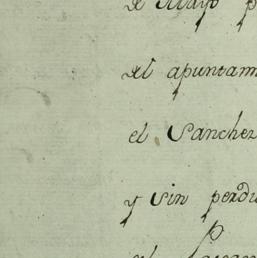 de Mayo p
del apuntam
el Sanchez
y sin perdi